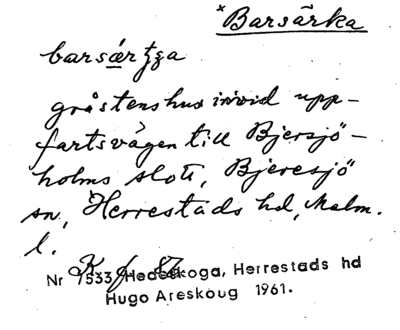 *Barsärka
barsǽrʈʂa
gråstenshus invid upp-
fartsvägen till Bjersjö-
holms slott, Bjeresjö
sn, Herrestads hd, Malm.
l.
Nr 7533 Hedeskoga, Herrestads hd
Hugo Areskoug 1961.